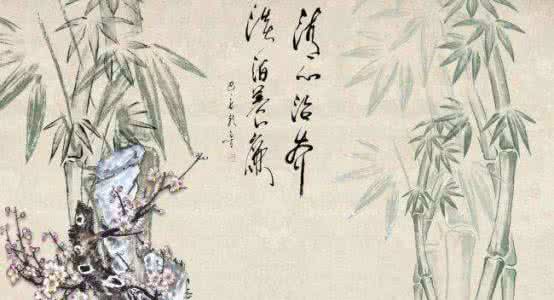 清心治本
淡泊養廉